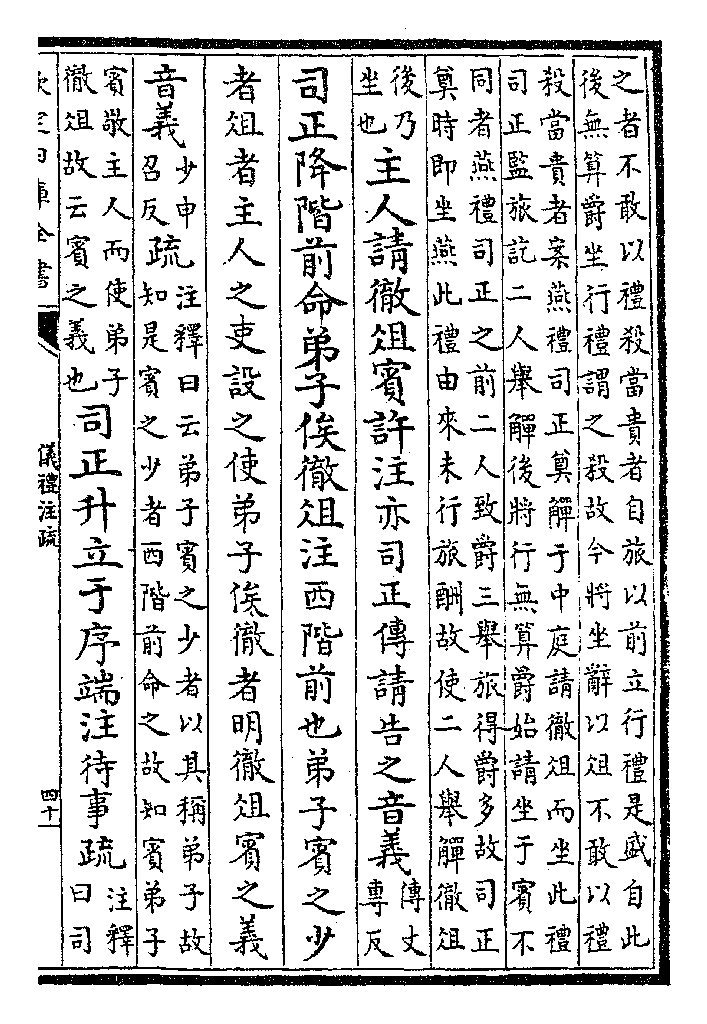 之者不敢以禮殺當貴者自旅以前立行禮是盛自此
後無算爵坐行禮謂之殺故今將坐辭以俎不敢以禮
殺當貴者案燕禮司正奠觶于中庭請徹俎而坐此禮
司正監旅訖二人舉觶後將行無算爵始請坐于賓不
同者燕禮司正之前二人致爵三舉旅得爵多故司正
奠時即坐燕此禮由來未行旅酬故使二人舉觶徹俎
後乃
坐也
主人請徹俎賓許注亦司正傳請告之音義
傳丈
專反
司正降階前命弟子俟徹俎注西階前也弟子賓之少
者俎者主人之吏設之使弟子俟徹者明徹俎賓之義
音義
少申
召反
疏
注釋曰云弟子賓之少者以其稱弟子故
知是賓之少者西階前命之故知賓弟子
賓敬主人而使弟子
徹俎故云賓之義也
司正升立于序端注待事疏
注釋
曰司
欽定四庫全書
儀禮注疏
四十一